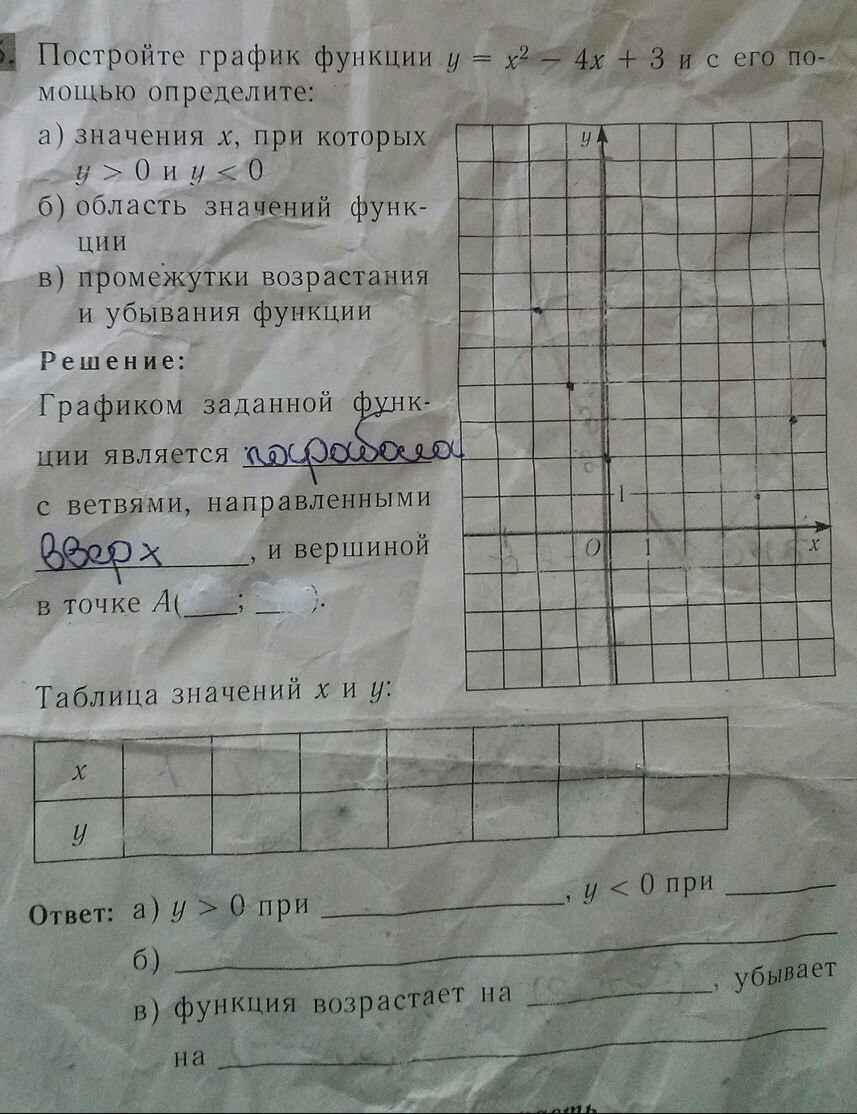 5. Постройте график функции y = x² − 4x + 3 и с его по-
мощью определите:
а) значения x, при которых
y > 0 и y < 0
б) область значений функ-
ции
в) промежутки возрастания
и убывания функции
Решение:
Графиком заданной функ-
ции является парабола
с ветвями, направленными
вверх, и вершиной
в точке A(___; ___).
y
1
O 1 x
Таблица значений x и y:
x
y
Ответ: а) y > 0 при ___, y < 0 при ___
б) ___
в) функция возрастает на ___, убывает
на ___